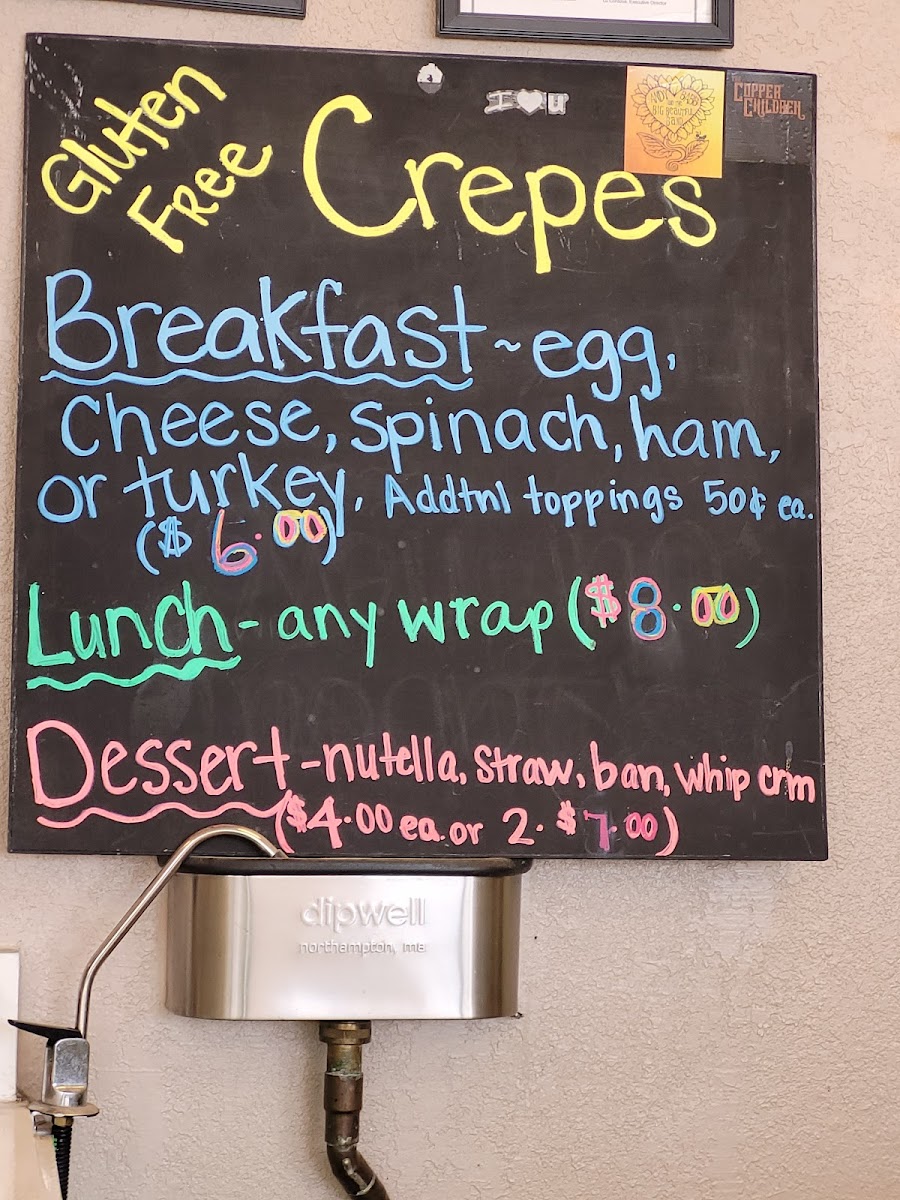 Gluten
Free
Crepes
I ♥ u
COPPER
CHILDREN
Breakfast ~ egg,
Cheese, spinach, ham,
or turkey. Addtnl toppings 50¢ ea.
($ 6.00)
Lunch - any wrap ($8.00)
Dessert - nutella, straw, ban, whip crm
($4.00 ea. or 2. $7.00)
dipwell
northampton, ma